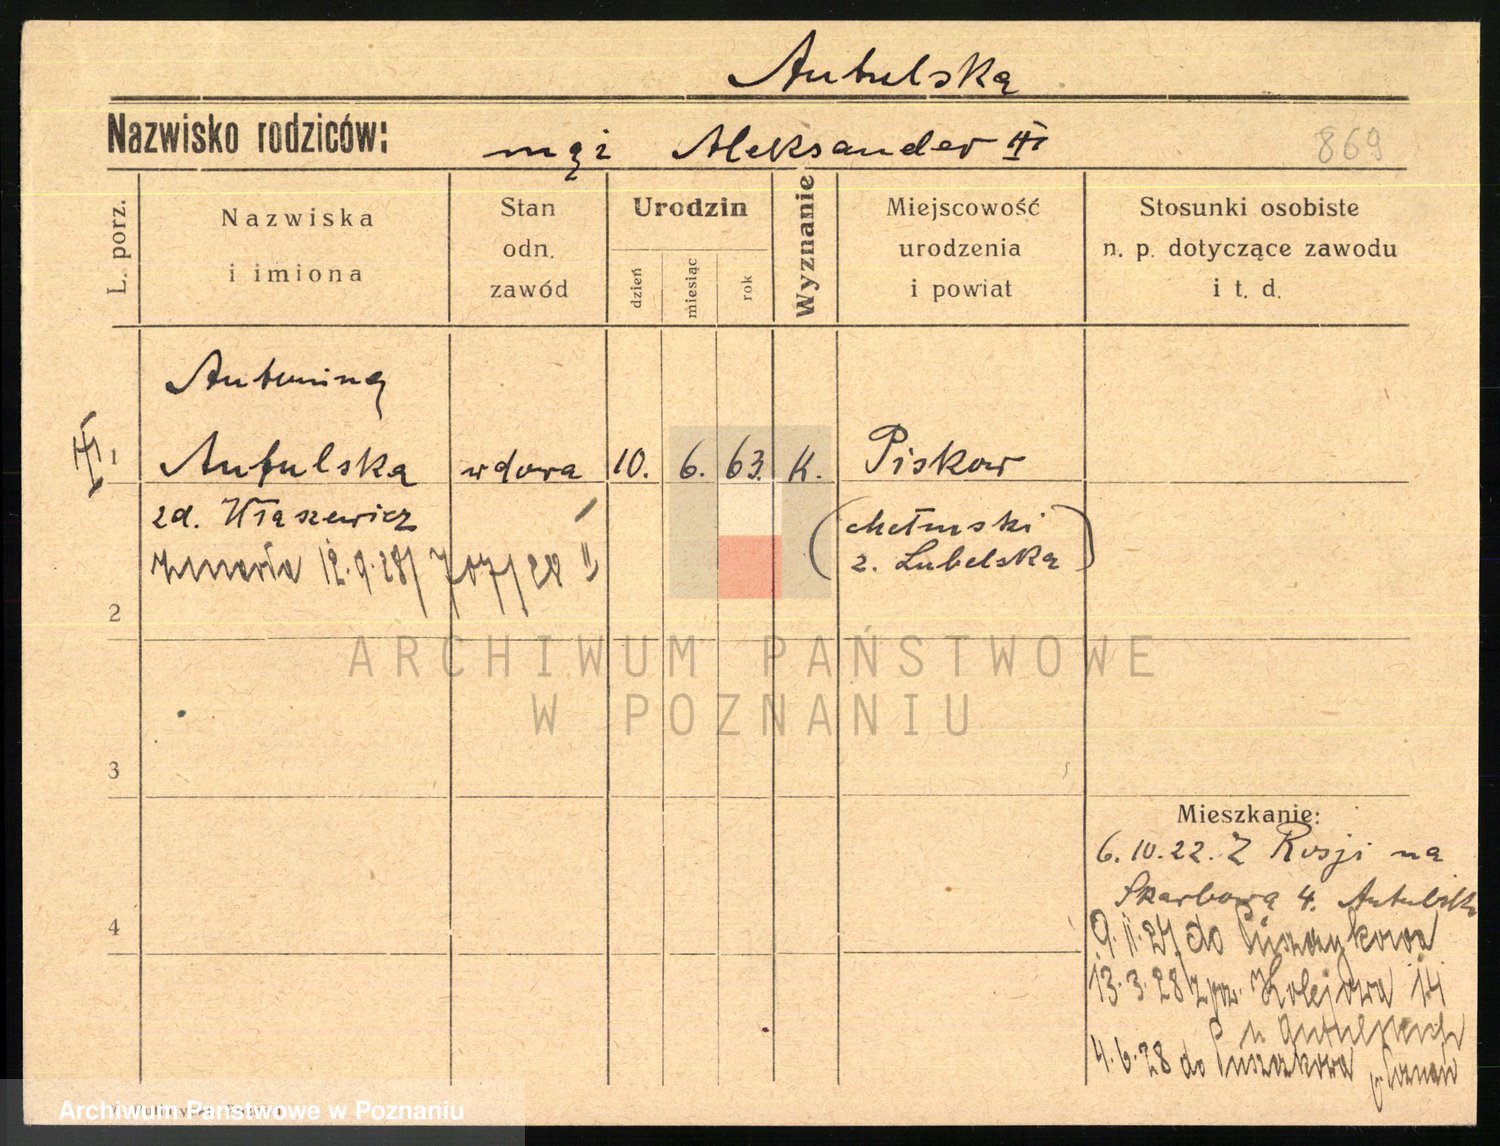 Antulska
Nazwisko rodziców:
mąż Aleksander
869
L. porz.
Nazwiska
i imiona
Stan
odn.
zawód
Urodzin
dzień
miesiąc
rok
Wyznanie
Miejscowość
urodzenia
i powiat
Stosunki osobiste
n. p. dotyczące zawodu
i t. d.
Antonina
1 Antulska wdowa 10. 6. 63. K. Piskow
zd. Kraszewicz
(chełmski
z. Lubelska)
zmarła 12.9.28
2
ARCHIWUM PAŃSTWOWE
W POZNANIU
3
4
Mieszkanie:
6.10.22. Z Rosji na
Skarbową 4.
9.11.27 do
13.3.28 z Kolejowa 14
4.6.28 do
Archiwum Państwowe w Poznaniu